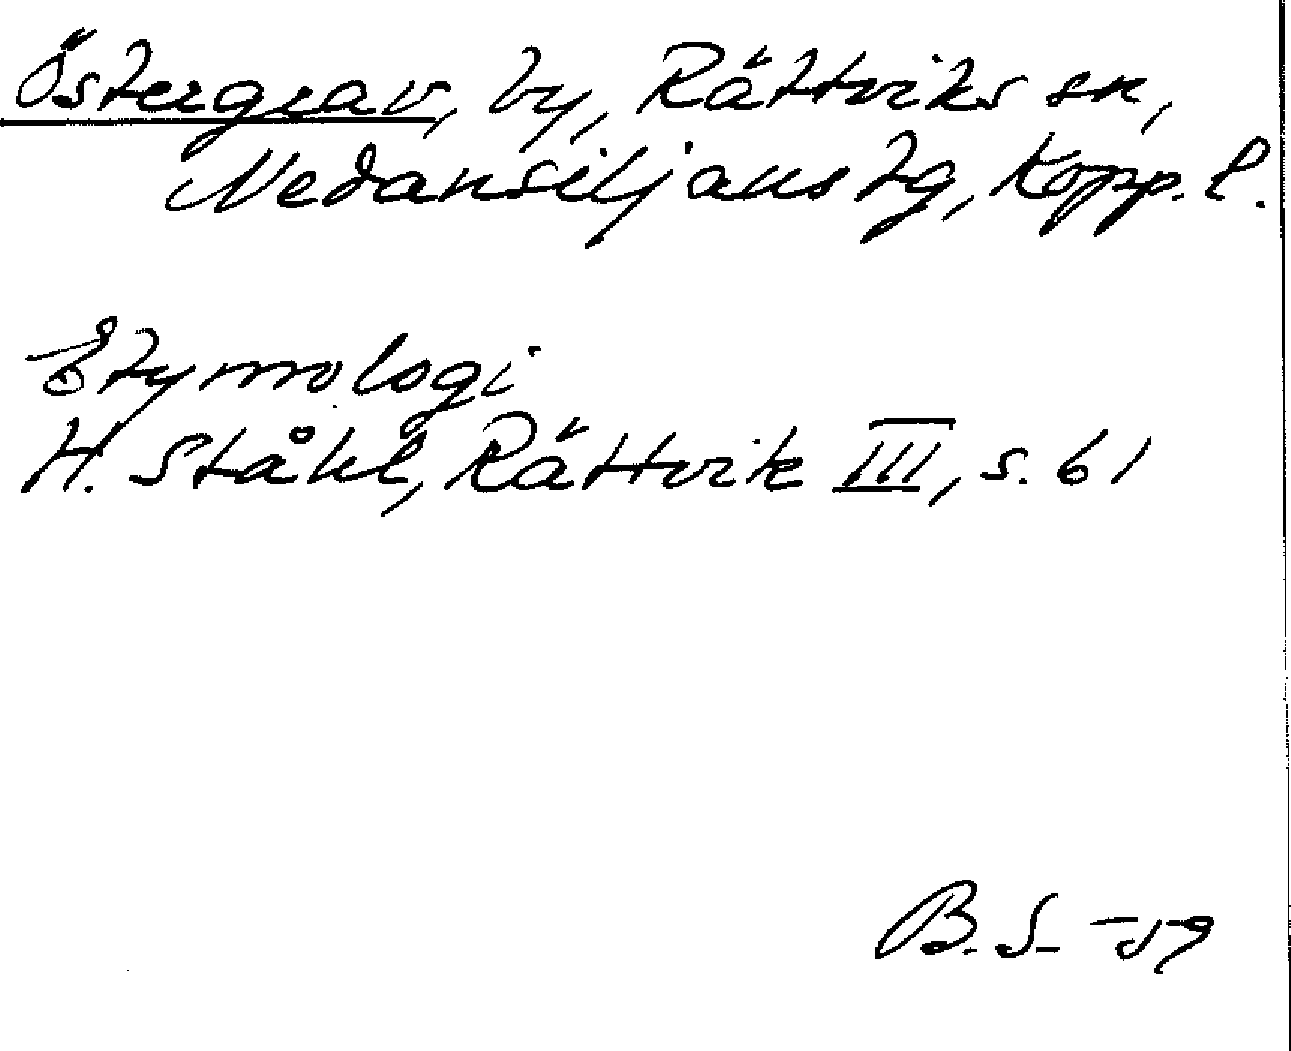 Östergrav, by, Rättviks sn,
Nedansiljans tg, Kopp. l.
Etymologi
H. Ståhl, Rättvik III, s. 61
B. S. -59